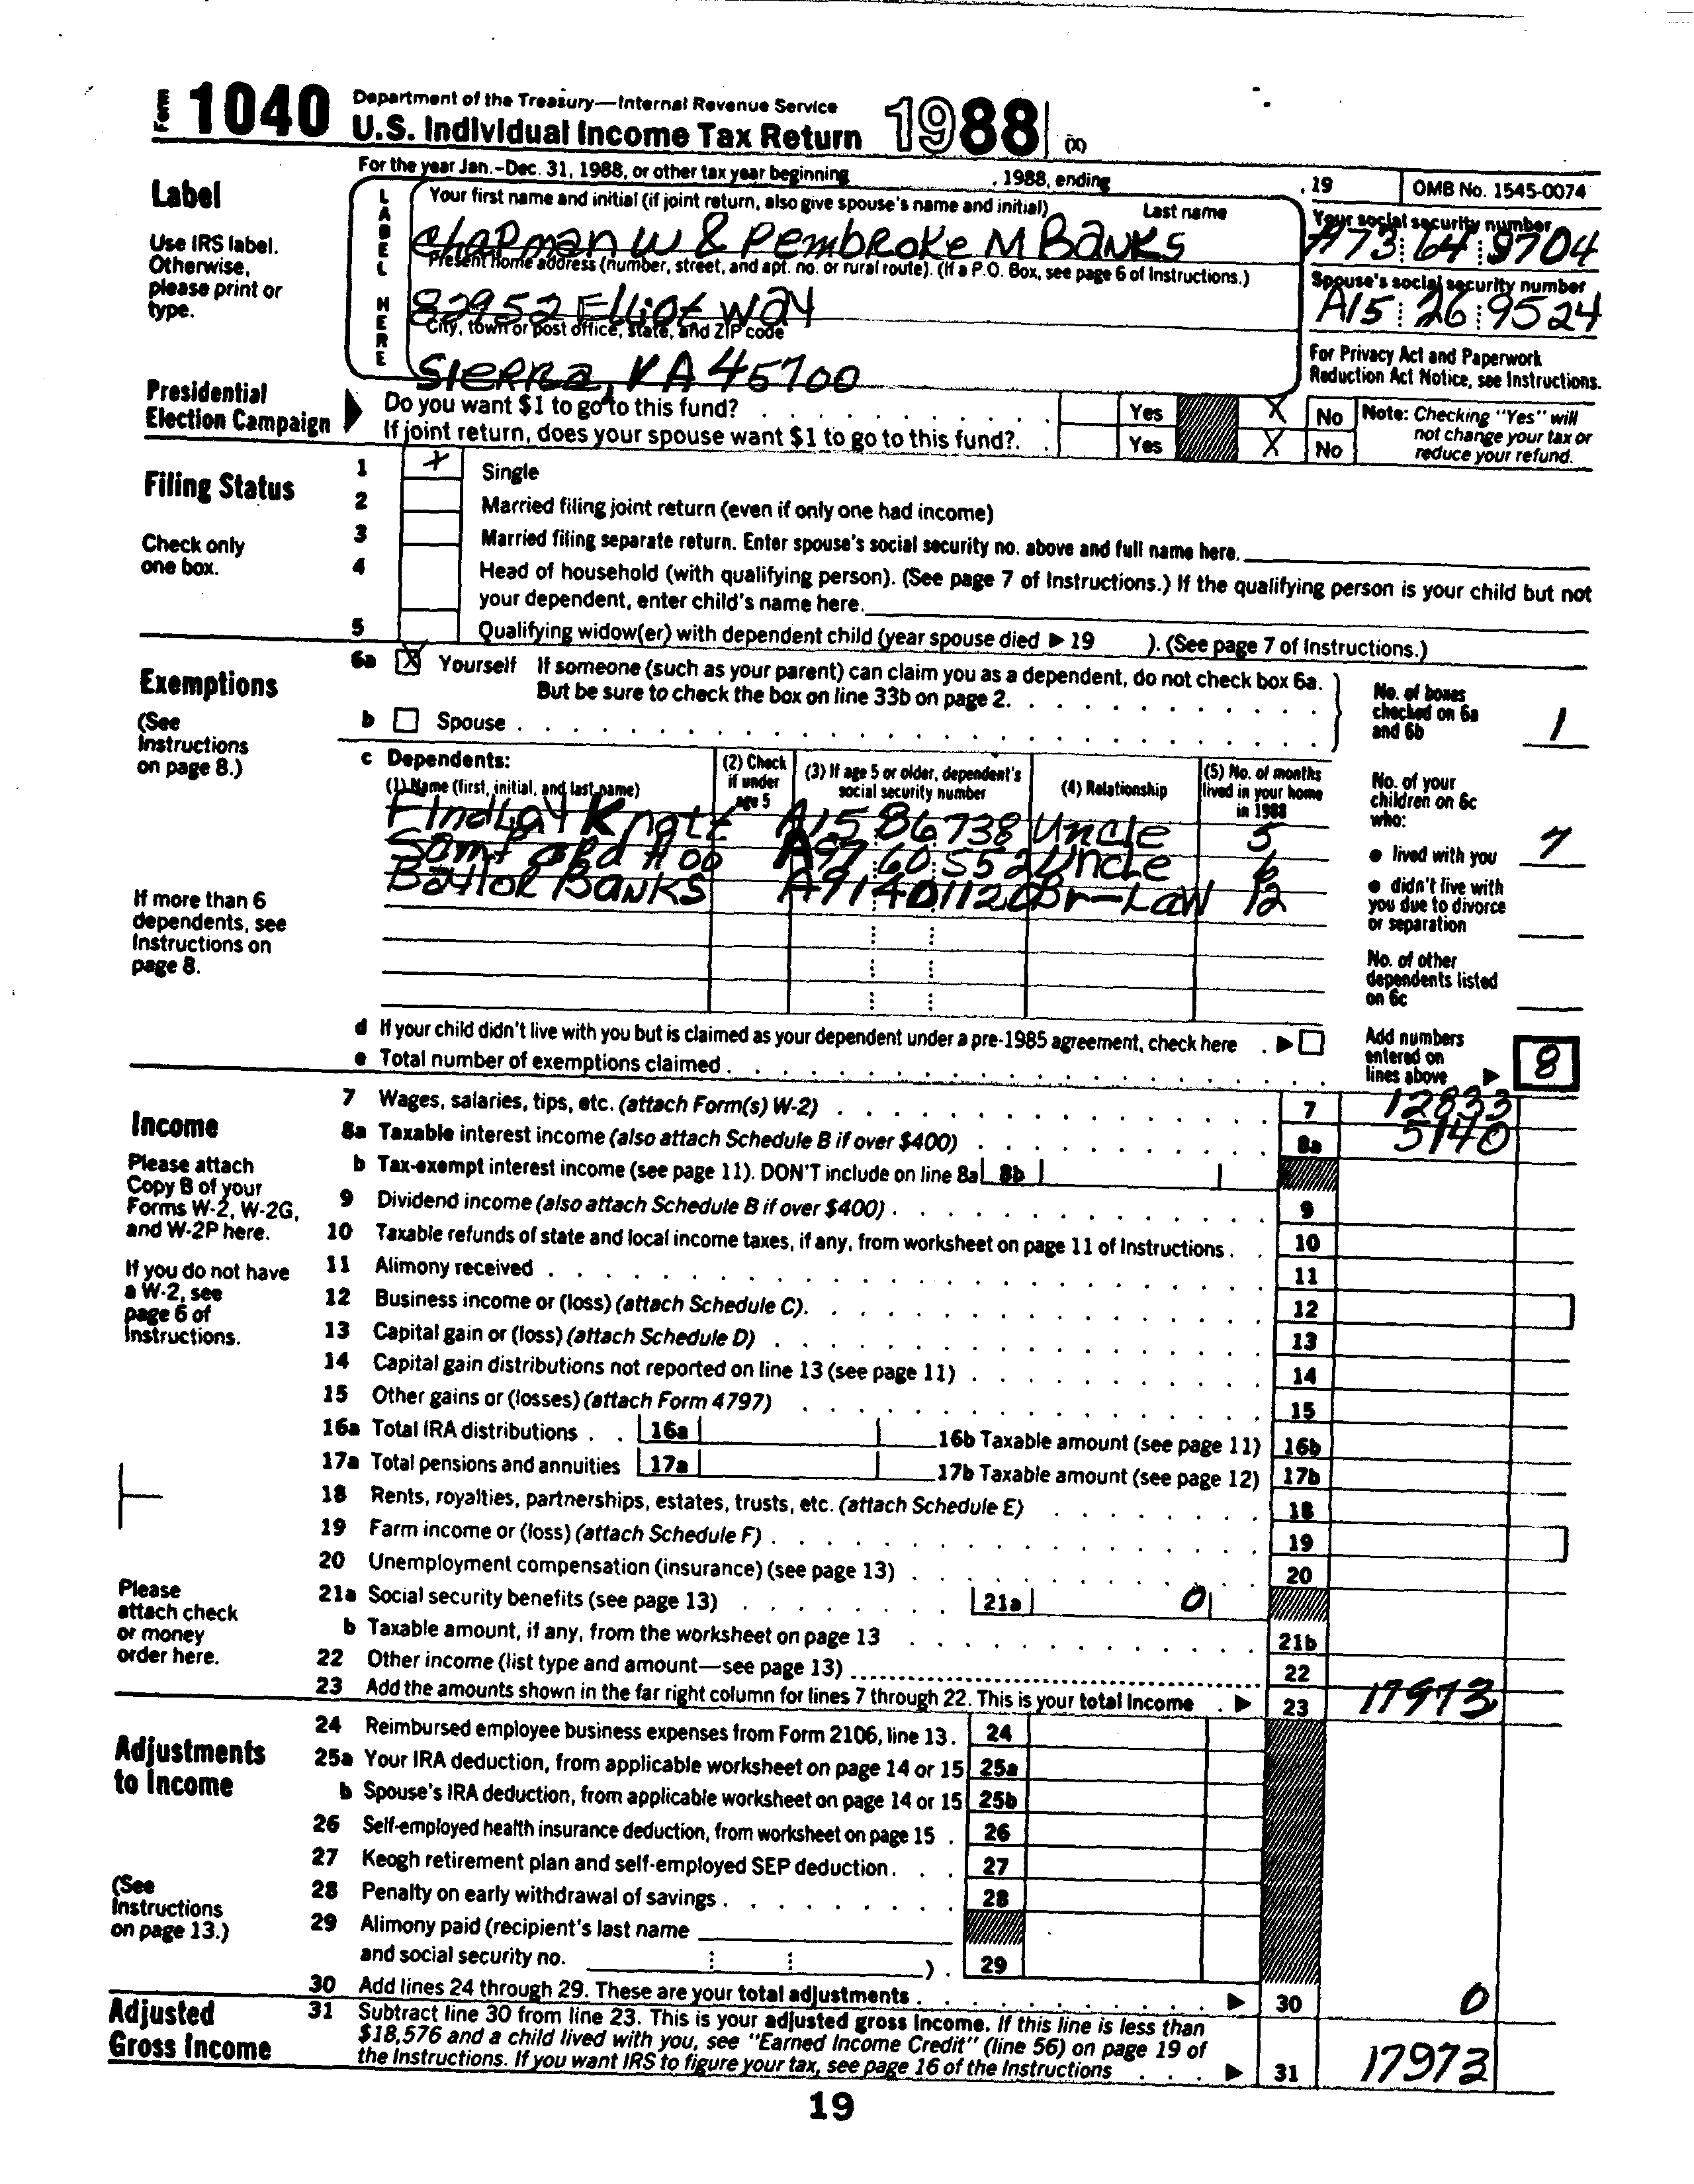 Form 1040 Department of the Treasury—Internal Revenue Service
U.S. Individual Income Tax Return 1988 (X)
For the year Jan.–Dec. 31, 1988, or other tax year beginning , 1988, ending , 19 OMB No. 1545-0074
Label
Use IRS label. Otherwise, please print or type.
LABEL HERE
Your first name and initial (if joint return, also give spouse's name and initial) Last name
Chapman W & Pembroke M Banks
Your social security number
A73 64 9704
Present home address (number, street, and apt. no. or rural route). (If a P.O. Box, see page 6 of Instructions.)
82952 Elliot Way
Spouse's social security number
A15 26 9524
City, town or post office, state, and ZIP code
Sierra, VA 45700
For Privacy Act and Paperwork Reduction Act Notice, see Instructions.
Presidential Election Campaign
Do you want $1 to go to this fund? Yes X No
If joint return, does your spouse want $1 to go to this fund?. Yes X No
Note: Checking "Yes" will not change your tax or reduce your refund.
Filing Status
Check only one box.
1 X Single
2 Married filing joint return (even if only one had income)
3 Married filing separate return. Enter spouse's social security no. above and full name here.
4 Head of household (with qualifying person). (See page 7 of Instructions.) If the qualifying person is your child but not
your dependent, enter child's name here.
5 Qualifying widow(er) with dependent child (year spouse died ▶ 19 ). (See page 7 of Instructions.)
Exemptions
(See Instructions on page 8.)
6a X Yourself If someone (such as your parent) can claim you as a dependent, do not check box 6a.
But be sure to check the box on line 33b on page 2.
b Spouse
No. of boxes checked on 6a and 6b 1
c Dependents:
(1) Name (first, initial, and last name) (2) Check if under age 5 (3) If age 5 or older, dependent's social security number (4) Relationship (5) No. of months lived in your home in 1988
Findlay Knott A15 86 738 Uncle 5
Samford Hoo A97 60 552 Uncle 6
Baylor Banks A91 40 1120 Br-Law 12
No. of your children on 6c who:
● lived with you 7
● didn't live with you due to divorce or separation
No. of other dependents listed on 6c
If more than 6 dependents, see Instructions on page 8.
d If your child didn't live with you but is claimed as your dependent under a pre-1985 agreement, check here ▶
e Total number of exemptions claimed
Add numbers entered on lines above ▶ 8
Income
Please attach Copy B of your Forms W-2, W-2G, and W-2P here.
If you do not have a W-2, see page 6 of Instructions.
Please attach check or money order here.
7 Wages, salaries, tips, etc. (attach Form(s) W-2) 7 12833
8a Taxable interest income (also attach Schedule B if over $400) 8a 5140
b Tax-exempt interest income (see page 11). DON'T include on line 8a 8b
9 Dividend income (also attach Schedule B if over $400) 9
10 Taxable refunds of state and local income taxes, if any, from worksheet on page 11 of Instructions 10
11 Alimony received 11
12 Business income or (loss) (attach Schedule C). 12
13 Capital gain or (loss) (attach Schedule D) 13
14 Capital gain distributions not reported on line 13 (see page 11) 14
15 Other gains or (losses) (attach Form 4797) 15
16a Total IRA distributions 16a 16b Taxable amount (see page 11) 16b
17a Total pensions and annuities 17a 17b Taxable amount (see page 12) 17b
18 Rents, royalties, partnerships, estates, trusts, etc. (attach Schedule E) 18
19 Farm income or (loss) (attach Schedule F) 19
20 Unemployment compensation (insurance) (see page 13) 20
21a Social security benefits (see page 13) 21a 0
b Taxable amount, if any, from the worksheet on page 13 21b
22 Other income (list type and amount—see page 13) 22
23 Add the amounts shown in the far right column for lines 7 through 22. This is your total income ▶ 23 17973
Adjustments to Income
(See Instructions on page 13.)
24 Reimbursed employee business expenses from Form 2106, line 13. 24
25a Your IRA deduction, from applicable worksheet on page 14 or 15 25a
b Spouse's IRA deduction, from applicable worksheet on page 14 or 15 25b
26 Self-employed health insurance deduction, from worksheet on page 15 26
27 Keogh retirement plan and self-employed SEP deduction 27
28 Penalty on early withdrawal of savings 28
29 Alimony paid (recipient's last name
and social security no. ). 29
30 Add lines 24 through 29. These are your total adjustments ▶ 30 0
Adjusted Gross Income
31 Subtract line 30 from line 23. This is your adjusted gross income. If this line is less than
$18,576 and a child lived with you, see "Earned Income Credit" (line 56) on page 19 of
the Instructions. If you want IRS to figure your tax, see page 16 of the Instructions ▶ 31 17973
19